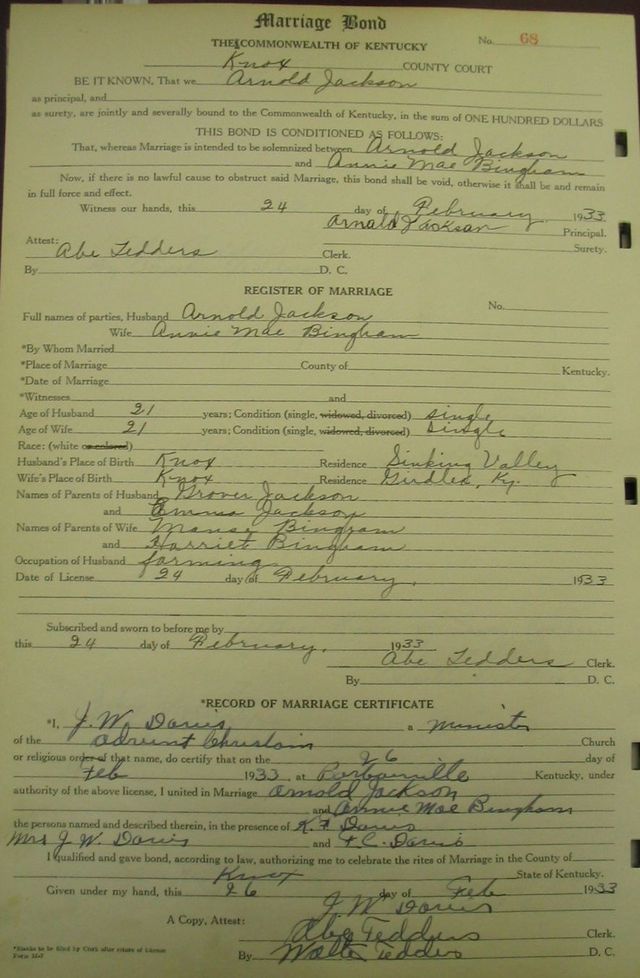 Marriage Bond
THE COMMONWEALTH OF KENTUCKY No. 68
Knox COUNTY COURT
BE IT KNOWN, That we Arnold Jackson
as principal, and
as surety, are jointly and severally bound to the Commonwealth of Kentucky, in the sum of ONE HUNDRED DOLLARS
THIS BOND IS CONDITIONED AS FOLLOWS:
That, whereas Marriage is intended to be solemnized between Arnold Jackson
and Annie Mae Bingham
Now, if there is no lawful cause to obstruct said Marriage, this bond shall be void, otherwise it shall be and remain
in full force and effect.
Witness our hands, this 24 day of February, 1933.
Arnold Jackson Principal.
Attest: Surety.
Abe Tedders Clerk.
By D. C.
REGISTER OF MARRIAGE
No.
Full names of parties, Husband Arnold Jackson
Wife Annie Mae Bingham
*By Whom Married
*Place of Marriage County of Kentucky.
*Date of Marriage
*Witnesses and
Age of Husband 21 years; Condition (single, widowed, divorced) single
Age of Wife 21 years; Condition (single, widowed, divorced) single
Race: (white or colored)
Husband's Place of Birth Knox Residence Sinking Valley
Wife's Place of Birth Knox Residence Girdler, Ky.
Names of Parents of Husband Grover Jackson
and Emma Jackson
Names of Parents of Wife Manse Bingham
and Harriet Bingham
Occupation of Husband farming
Date of License 24 day of February, 1933
Subscribed and sworn to before me by
this 24 day of February, 1933
Abe Tedders Clerk.
By D. C.
*RECORD OF MARRIAGE CERTIFICATE
*I, J. W. Davis a minister
of the Advent Christain Church
or religious order of that name, do certify that on the 26 day of
Feb 1933, at Barbourville Kentucky, under
authority of the above license, I united in Marriage Arnold Jackson
and Annie Mae Bingham
the persons named and described therein, in the presence of K. F Davis
Mrs J. W. Davis and F. C. Davis
I qualified and gave bond, according to law, authorizing me to celebrate the rites of Marriage in the County of
Knox State of Kentucky.
Given under my hand, this 26 day of Feb 1933
J W Davis
A Copy, Attest: Abe Tedders Clerk.
By Walter Tedders D. C.
*Blanks to be filled by Clerk after return of License